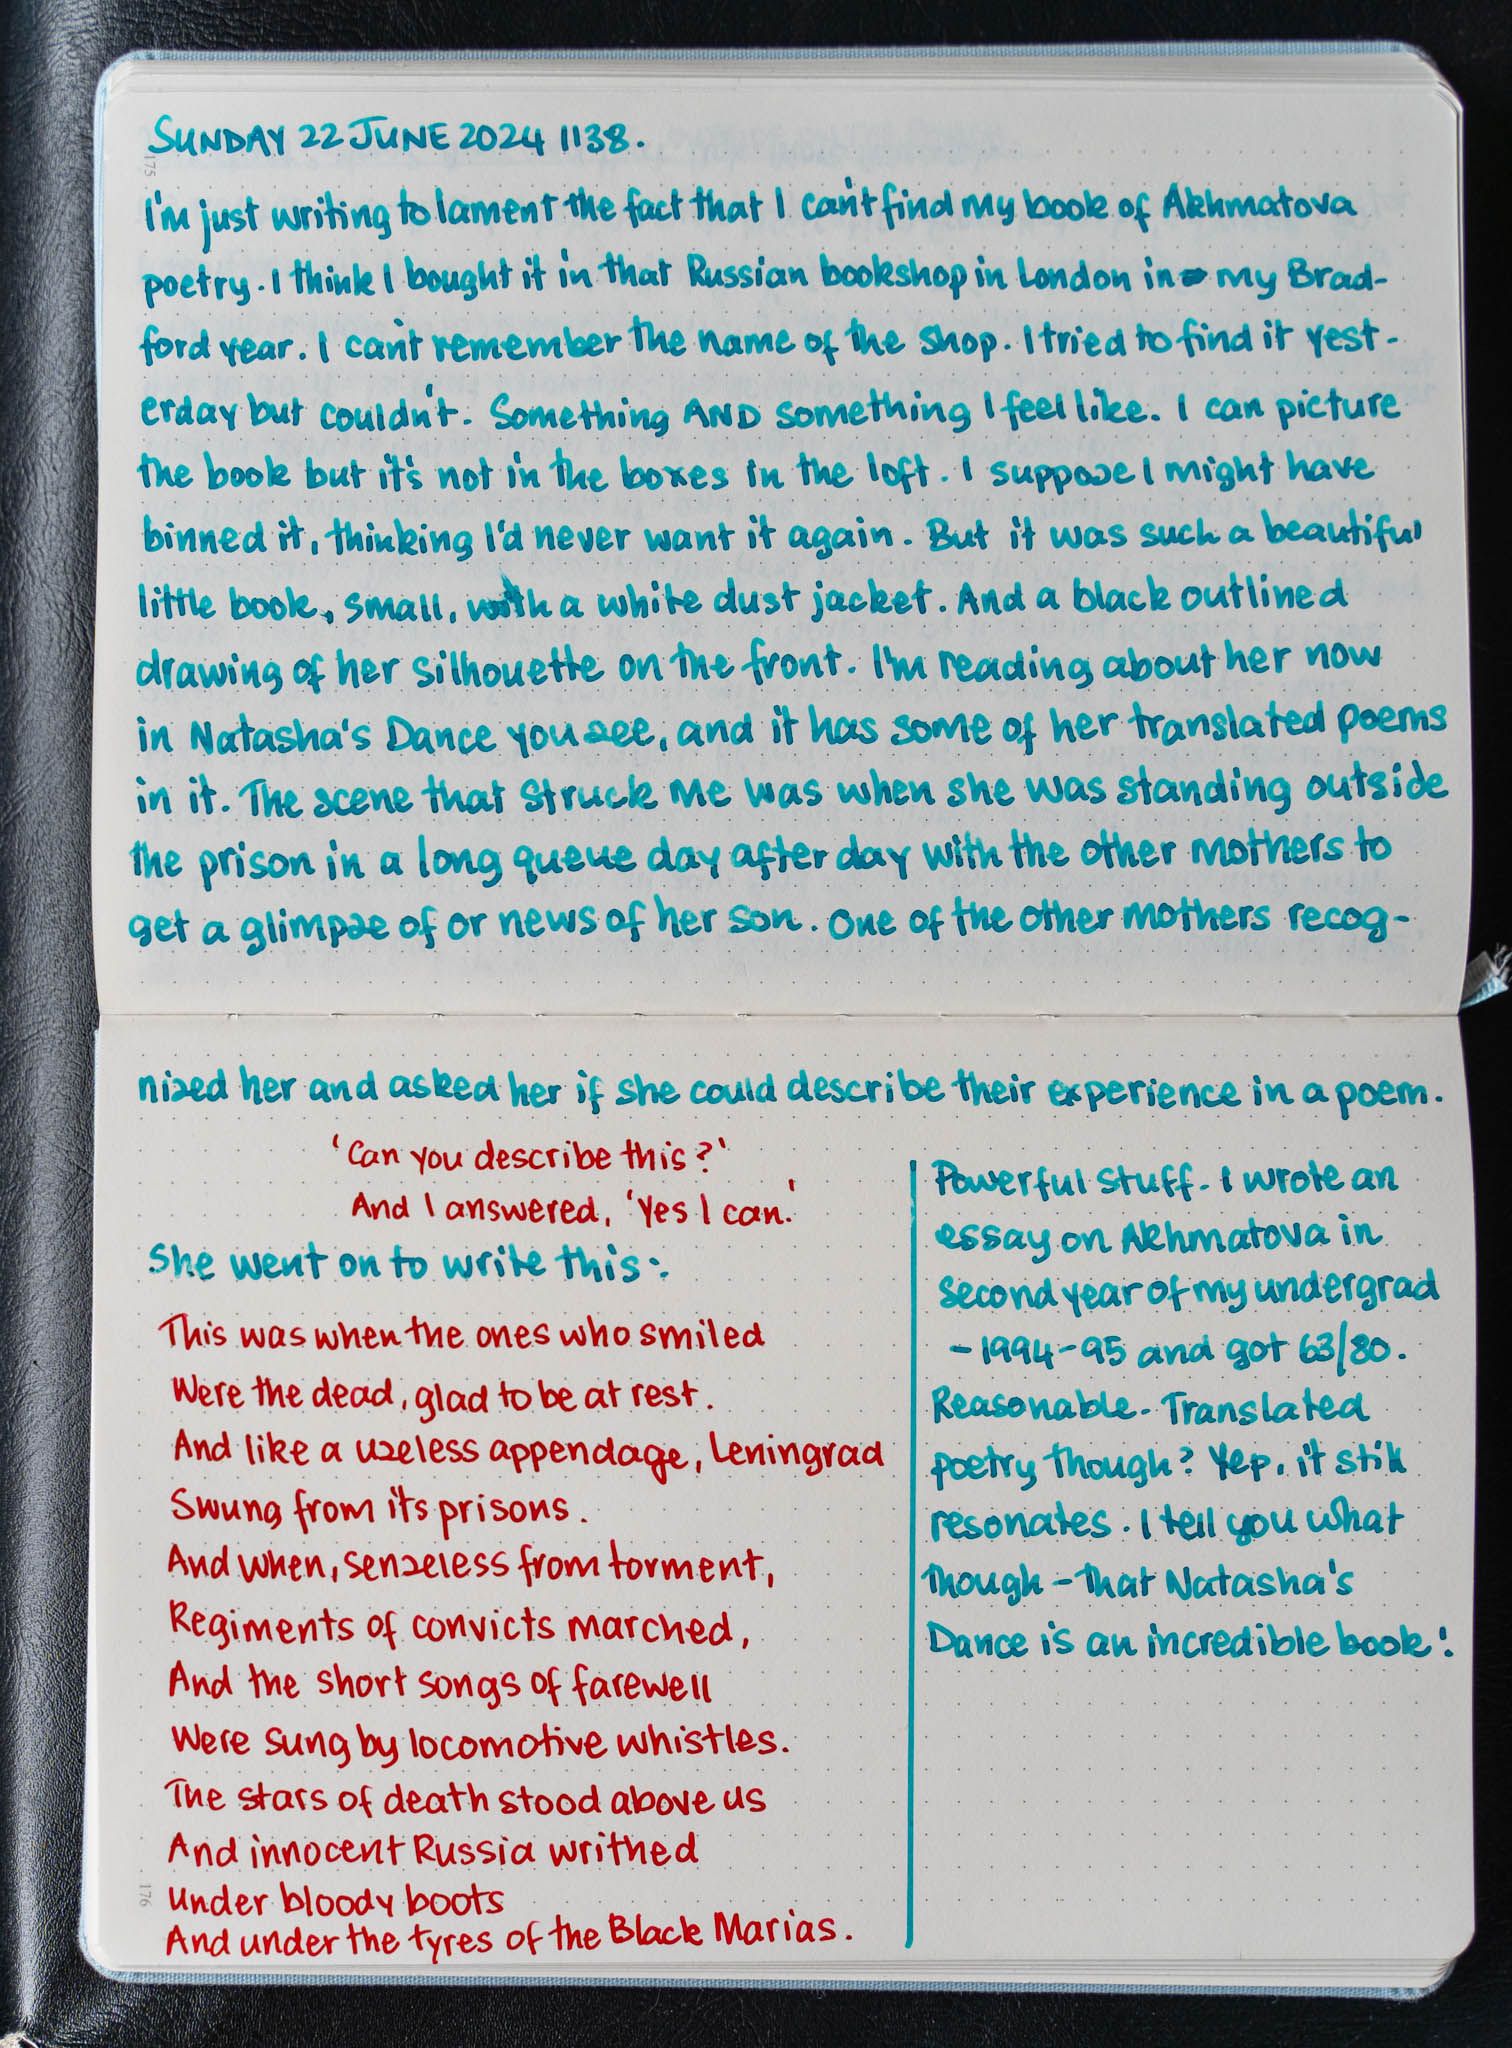 SUNDAY 22 JUNE 2024 1138.
175
I'm just writing to lament the fact that I can't find my book of Akhmatova
poetry. I think I bought it in that Russian bookshop in London in my Brad-
ford year. I can't remember the name of the shop. I tried to find it yest-
erday but couldn't. Something AND something I feel like. I can picture
the book but it's not in the boxes in the loft. I suppose I might have
binned it, thinking I'd never want it again. But it was such a beautiful
little book, small, with a white dust jacket. And a black outlined
drawing of her silhouette on the front. I'm reading about her now
in Natasha's Dance you see, and it has some of her translated poems
in it. The scene that struck me was when she was standing outside
the prison in a long queue day after day with the other mothers to
get a glimpse of or news of her son. One of the other mothers recog-
nized her and asked her if she could describe their experience in a poem.
'Can you describe this?'
And I answered, 'Yes I can.'
She went on to write this:
This was when the ones who smiled
Were the dead, glad to be at rest.
And like a useless appendage, Leningrad
Swung from its prisons.
And when, senseless from torment,
Regiments of convicts marched,
And the short songs of farewell
Were sung by locomotive whistles.
The stars of death stood above us
And innocent Russia writhed
Under bloody boots
And under the tyres of the Black Marias.
176
Powerful stuff. I wrote an
essay on Akhmatova in
second year of my undergrad
- 1994-95 and got 63/80.
Reasonable. Translated
poetry though? Yep, it still
resonates. I tell you what
though - that Natasha's
Dance is an incredible book!